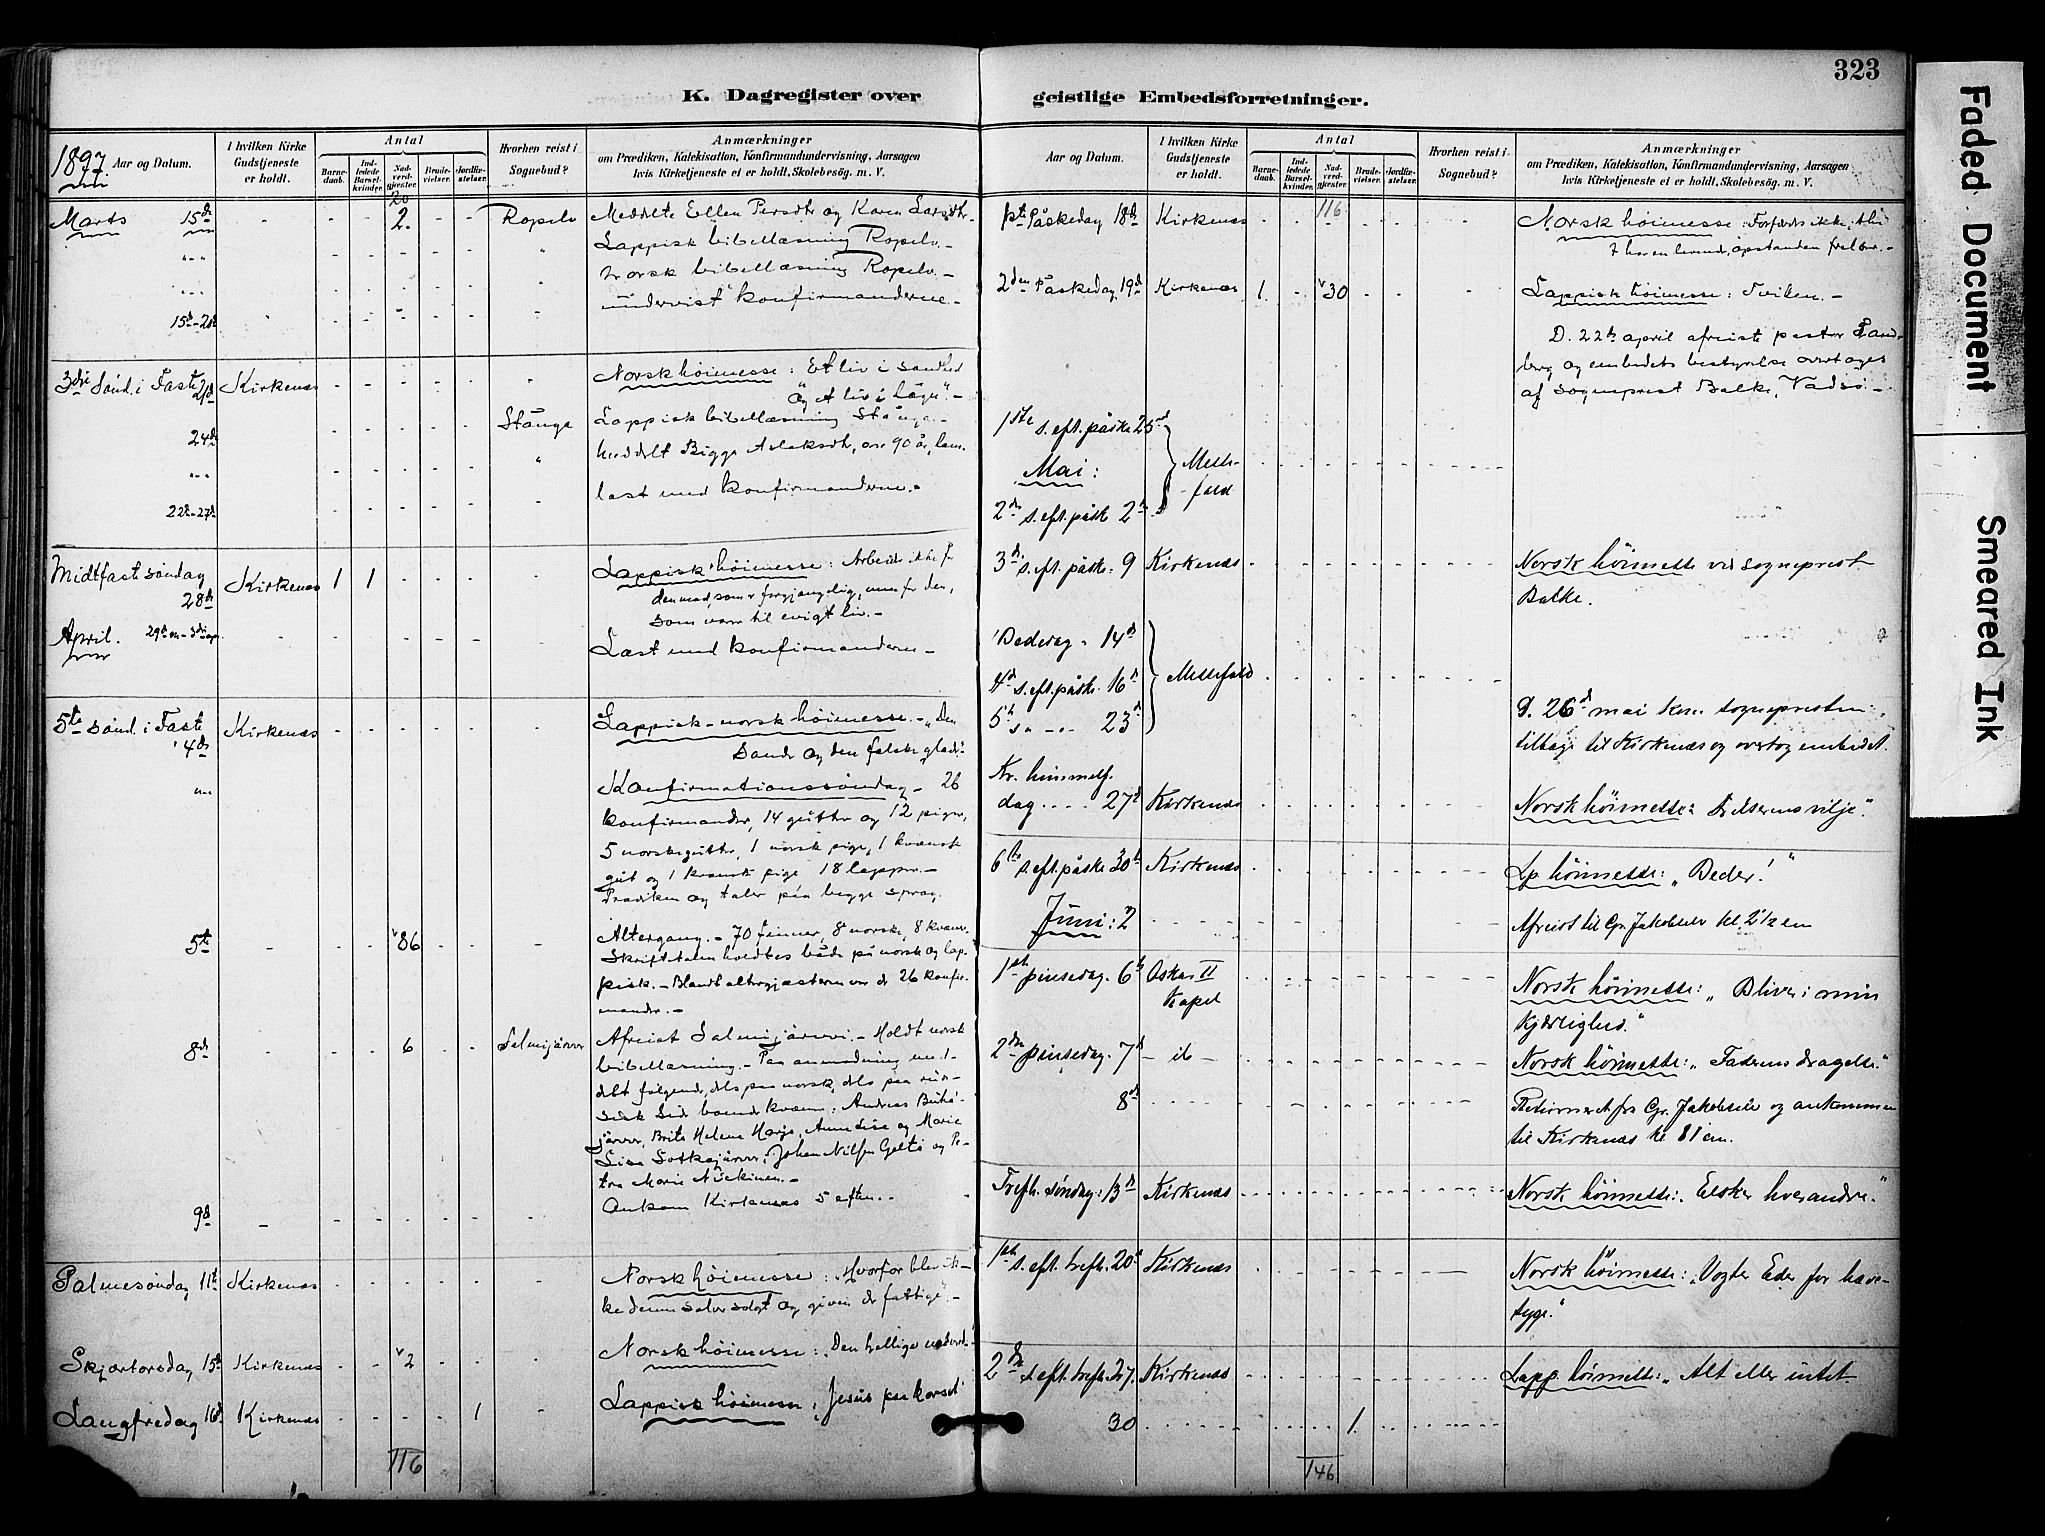 323
K. Dagregister over geistlige Embedsforretninger.
1897.
Aar og Datum.
I hvilken Kirke Gudstjeneste er holdt.
Antal
Barnedaab.
Indledede Barselkvinder.
Nadverdgjester.
Brudevielser.
Jordfæstelser.
Hvorhen reist i Sognebud?
Anmærkninger
om Prædiken, Katekisation, Konfirmandundervisning, Aarsagen
hvis Kirketjeneste ei er holdt, Skolebesög. m. V.
20
Marts 15de 2. Ropelv Meddelte Ellen Persdtr og Karen Larsdtr.
Lappisk bibellæsning Ropelv.
Norsk bibellæsning Ropelv.
15d-20d undervist konfirmanderne.
3die Sönd. i Faste 21d Kirkenæs Norsk höimesse: Et liv i sandhed
og et liv i lögn".
Stånga Lappisk bibellæsning Stånga.
24de
meddelt Bigga Aslaksdtr, over 90 år, lam.
22d-27d læst med konfirmanderne.
Midtfastesöndag 28de Kirkenæs 1 1 Lappisk höimesse: Arbeid ikke for
den mad, som er forgjængelig, men for den,
som varer til evigt liv.
April. 29de m - 3die ap.
Læst med konfirmanderne
5te sönd. i Faste 4de Kirkenæs Lappisk-norsk höimesse. - "Den
sande og den falske glæde".
Konfirmationssöndag - 26
konfirmander, 14 gutter og 12 piger,
5 norske gutter, 1 norsk pige, 1 kvænsk
gut og 1 kvænsk pige 18 lapper.
Prædiken og taler paa begge sprog.
5te 86 Altergang. - 70 finner, 8 norske, 8 kvæner.
Skriftetalen holdtes både på norsk og lap-
pisk. - Blandt altergjæsterne var de 26 konfir-
mander.
8de 6 Salmijärvi Afreist Salmijärvi. - Holdt norsk
bibellæsning. - Paa anmodning med-
delt fölgende, dels paa norsk, dels paa rus-
sisk side boende kvæner: Andreas
järvi, Brita Helena Harjo, Anna Lisa og Marie
Lisa Sotkajärvi, Johan Nilsen og Pe-
tra Marie
9d Ankom Kirkenæs 5 eftm.
Palmesöndag 11te Kirkenæs Norsk höimesse: "Hvorfor blev ik-
ke denne salve solgt og given de fattige".
Skjærtorsdag 15de Kirkenæs 2 Norsk höimesse: "Den hellige nadverd."
Langfredag 16d Kirkenæs 1 Lappisk höimesse "Jesus paa korset"
116
Aar og Datum.
I hvilken Kirke Gudstjeneste er holdt.
Antal
Barnedaab.
Indledede Barselkvinder.
Nadverdgjester.
Brudevielser.
Jordfæstelser.
Hvorhen reist i Sognebud?
Anmærkninger
om Prædiken, Katekisation, Konfirmandundervisning, Aarsagen
hvis Kirketjeneste ei er holdt, Skolebesög. m. V.
1ste Påskedag 18de Kirkenæs 116 Norsk höimesse: Forfærdes ikke,
I har en levende, opstanden frelser.
2den Påskedag 19de Kirkenæs 1. 30 Lappisk höimesse: Tvilen.
D. 22de april afreiste pastor Sand-
berg og embedets bestyrelse overtages
af sogneprest Balke, Vadsö.
1ste s. eft. påske 25de
Mai: Messe-
fald
2den s. eft. påske 2de
3die s. eft. påske. 9 Kirkenæs Norsk höimesse ved sogneprest
Balke.
Bededag. 14de
4de s. eft. påske. 16de Messefald
5te s. -"- 23de D. 26de mai kom sognepresten
tilbage til Kirkenæs og overtog embedet.
Kr. himmelf.
dag .... 27de Kirkenæs Norsk höimesse: Frelserens vilje".
6te s. eft. påske 30te Kirkenæs Lp. höimesse: "Beder!"
Juni: 2 Afreist til Gr. Jakobselv kl. 2 1/2 em
1ste pinsedag. 6te Oskar II
Kapel
Norsk höimesse: "Bliver i min
kjærlighed."
2den pinsedag. 7de - ib - Norsk höimesse: "Faderens dragelse."
8de Returneret fra Gr. Jakobselv og ankommen
til Kirkenæs kl 8 1 em.
Trefh. söndag: 13de Kirkenæs Norsk höimesse: "Elsker hverandre."
1ste s. eft. trefh. 20de Kirkenæs Norsk höimesse: "Vogter Eder for have-
syge."
2den s. eft. trefh. 27. Kirkenæs Lapp. höimesse: "Alt eller intet
30 1.
146
Faded Document
Smeared Ink